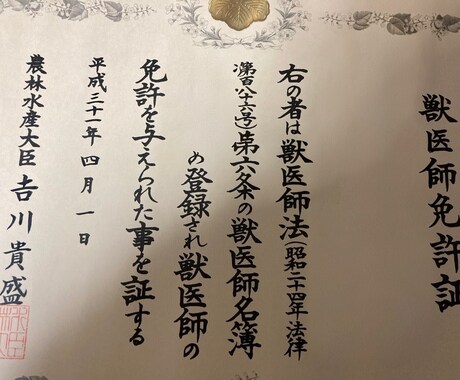 獣医師免許証
右の者は獣医師法(昭和二十四年法律
第百八十六号)第六条の獣医師名簿
に登録され獣医師の
免許を与えられた事を証する
平成三十一年四月一日
農林水産大臣 吉川貴盛